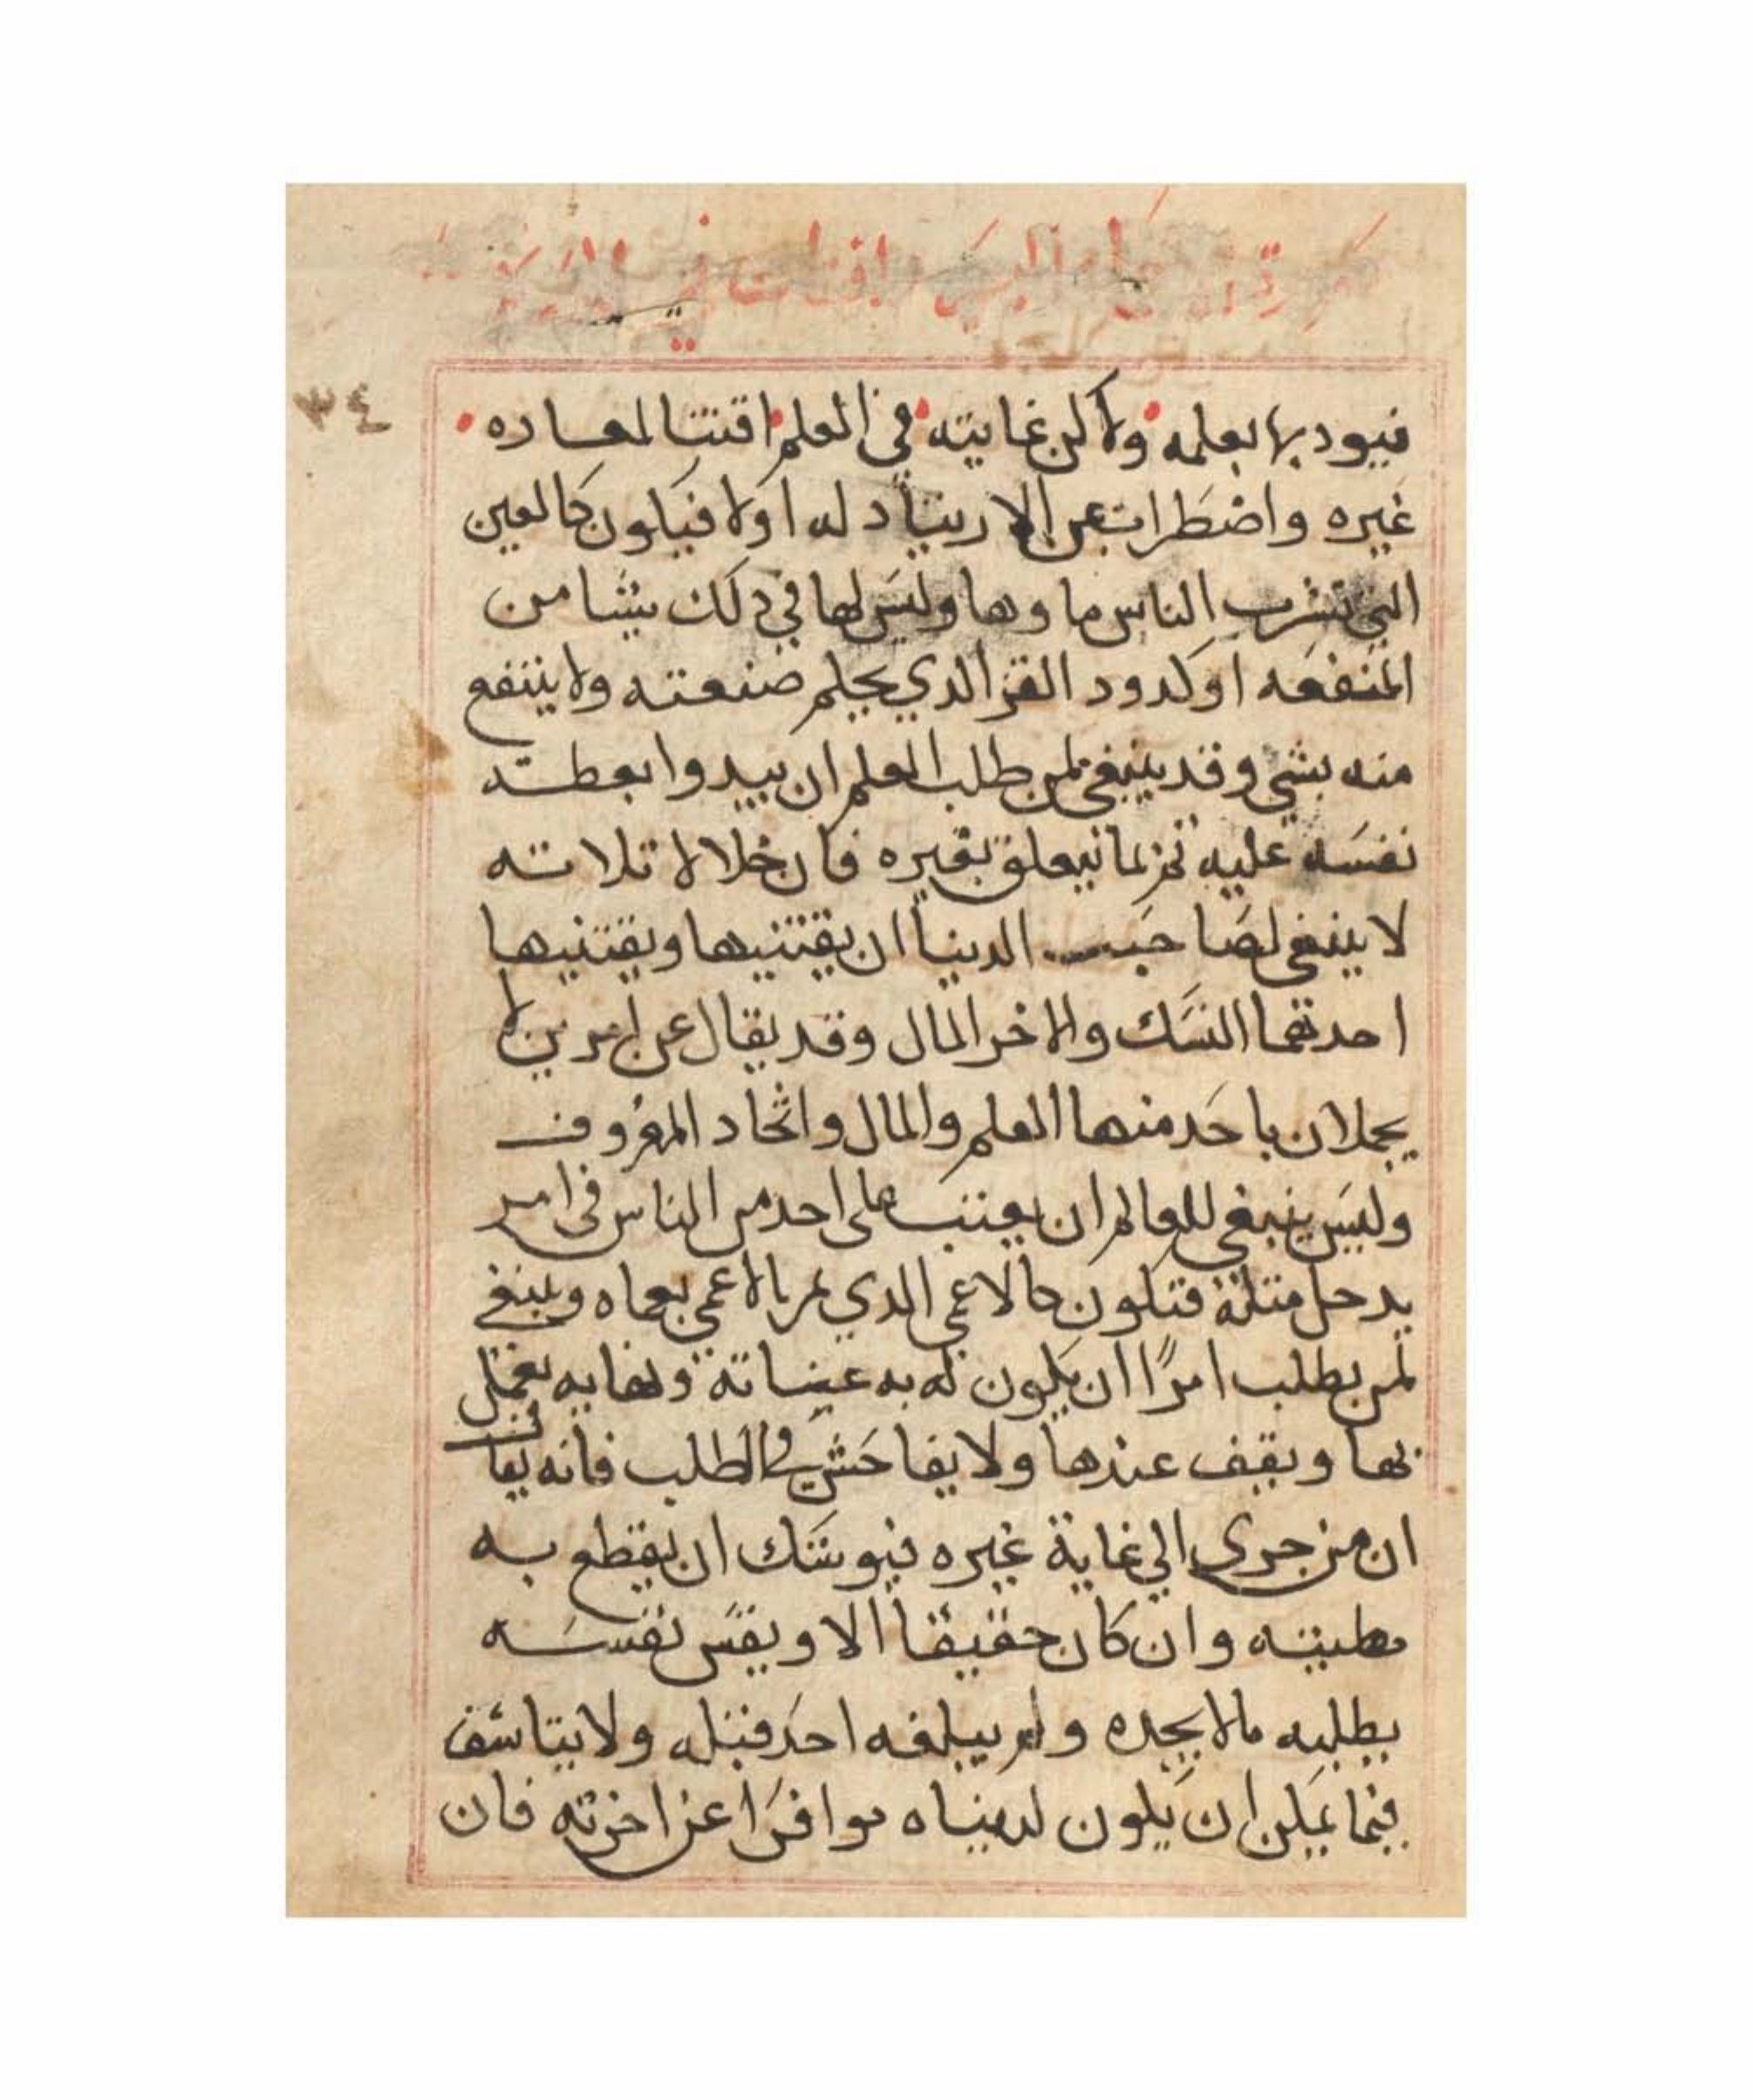 ٣٤
فيودبها بعلمه ولا كن غايته في العلم اقتنا لمعاده
غيره واضطراب عن الارتياد له اولا فيكون كالعين
التي تشرب الناس ماوها وليس لها في دلك شيا من
المنفعه او كدود القز الدي يحكم صنعته ولا ينتفع
منه بشي وقد ينبغي لمن طلب العلم ان يبدوا بعظته
نفسه عليه تعلق بغيره فان خلالا تلاته
لا ينبغي لصاحب الدنيا ان يقتنيها ويقتنيها
احدتهما النسك والاخر المال وقد يقال عن امرين لا
يجملان باحد منهما العلم والمال واتخاد المعروف
وليس ينبغي للعالم ان يعتب على احد من الناس في امر
يدخل متله فتكون كالاعمى الدي بالاعمى بعماه وينبغي
لمن يطلب امرًا ان يكون له به ونهايه يعمل
بها ويقف عندها ولا يفاحش في الطلب فانه يقال
ان من جرى الي غاية غيره فيوشك ان يقطع به
مطيته وان كان حقيقا الا ويقس نفسه
بطلبه ما لا يجده ولم يبلغه احد قبله ولا يتاسف
فيما يمكن ان يكون لدنياه موافرا عن اخرته فان